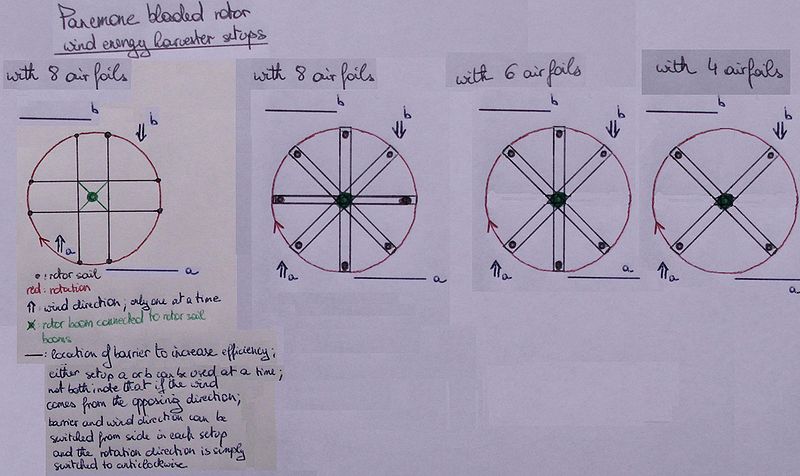 Panemone bladed rotor
wind energy harvester setups
with 8 airfoils
with 8 airfoils
with 6 airfoils
with 4 airfoils
b
b
b
b
b
b
b
b
a
a
a
a
a
a
a
a
•: rotor sail
red: rotation
⇑: wind direction; only one at a time
X: rotor boom connected to rotor sail
booms
—: location of barrier to increase efficiency;
either setup a or b can be used at a time;
not both; note that if the wind
comes from the opposing direction;
barrier and wind direction can be
switched from side in each setup
and the rotation direction is simply
switched to anticlockwise